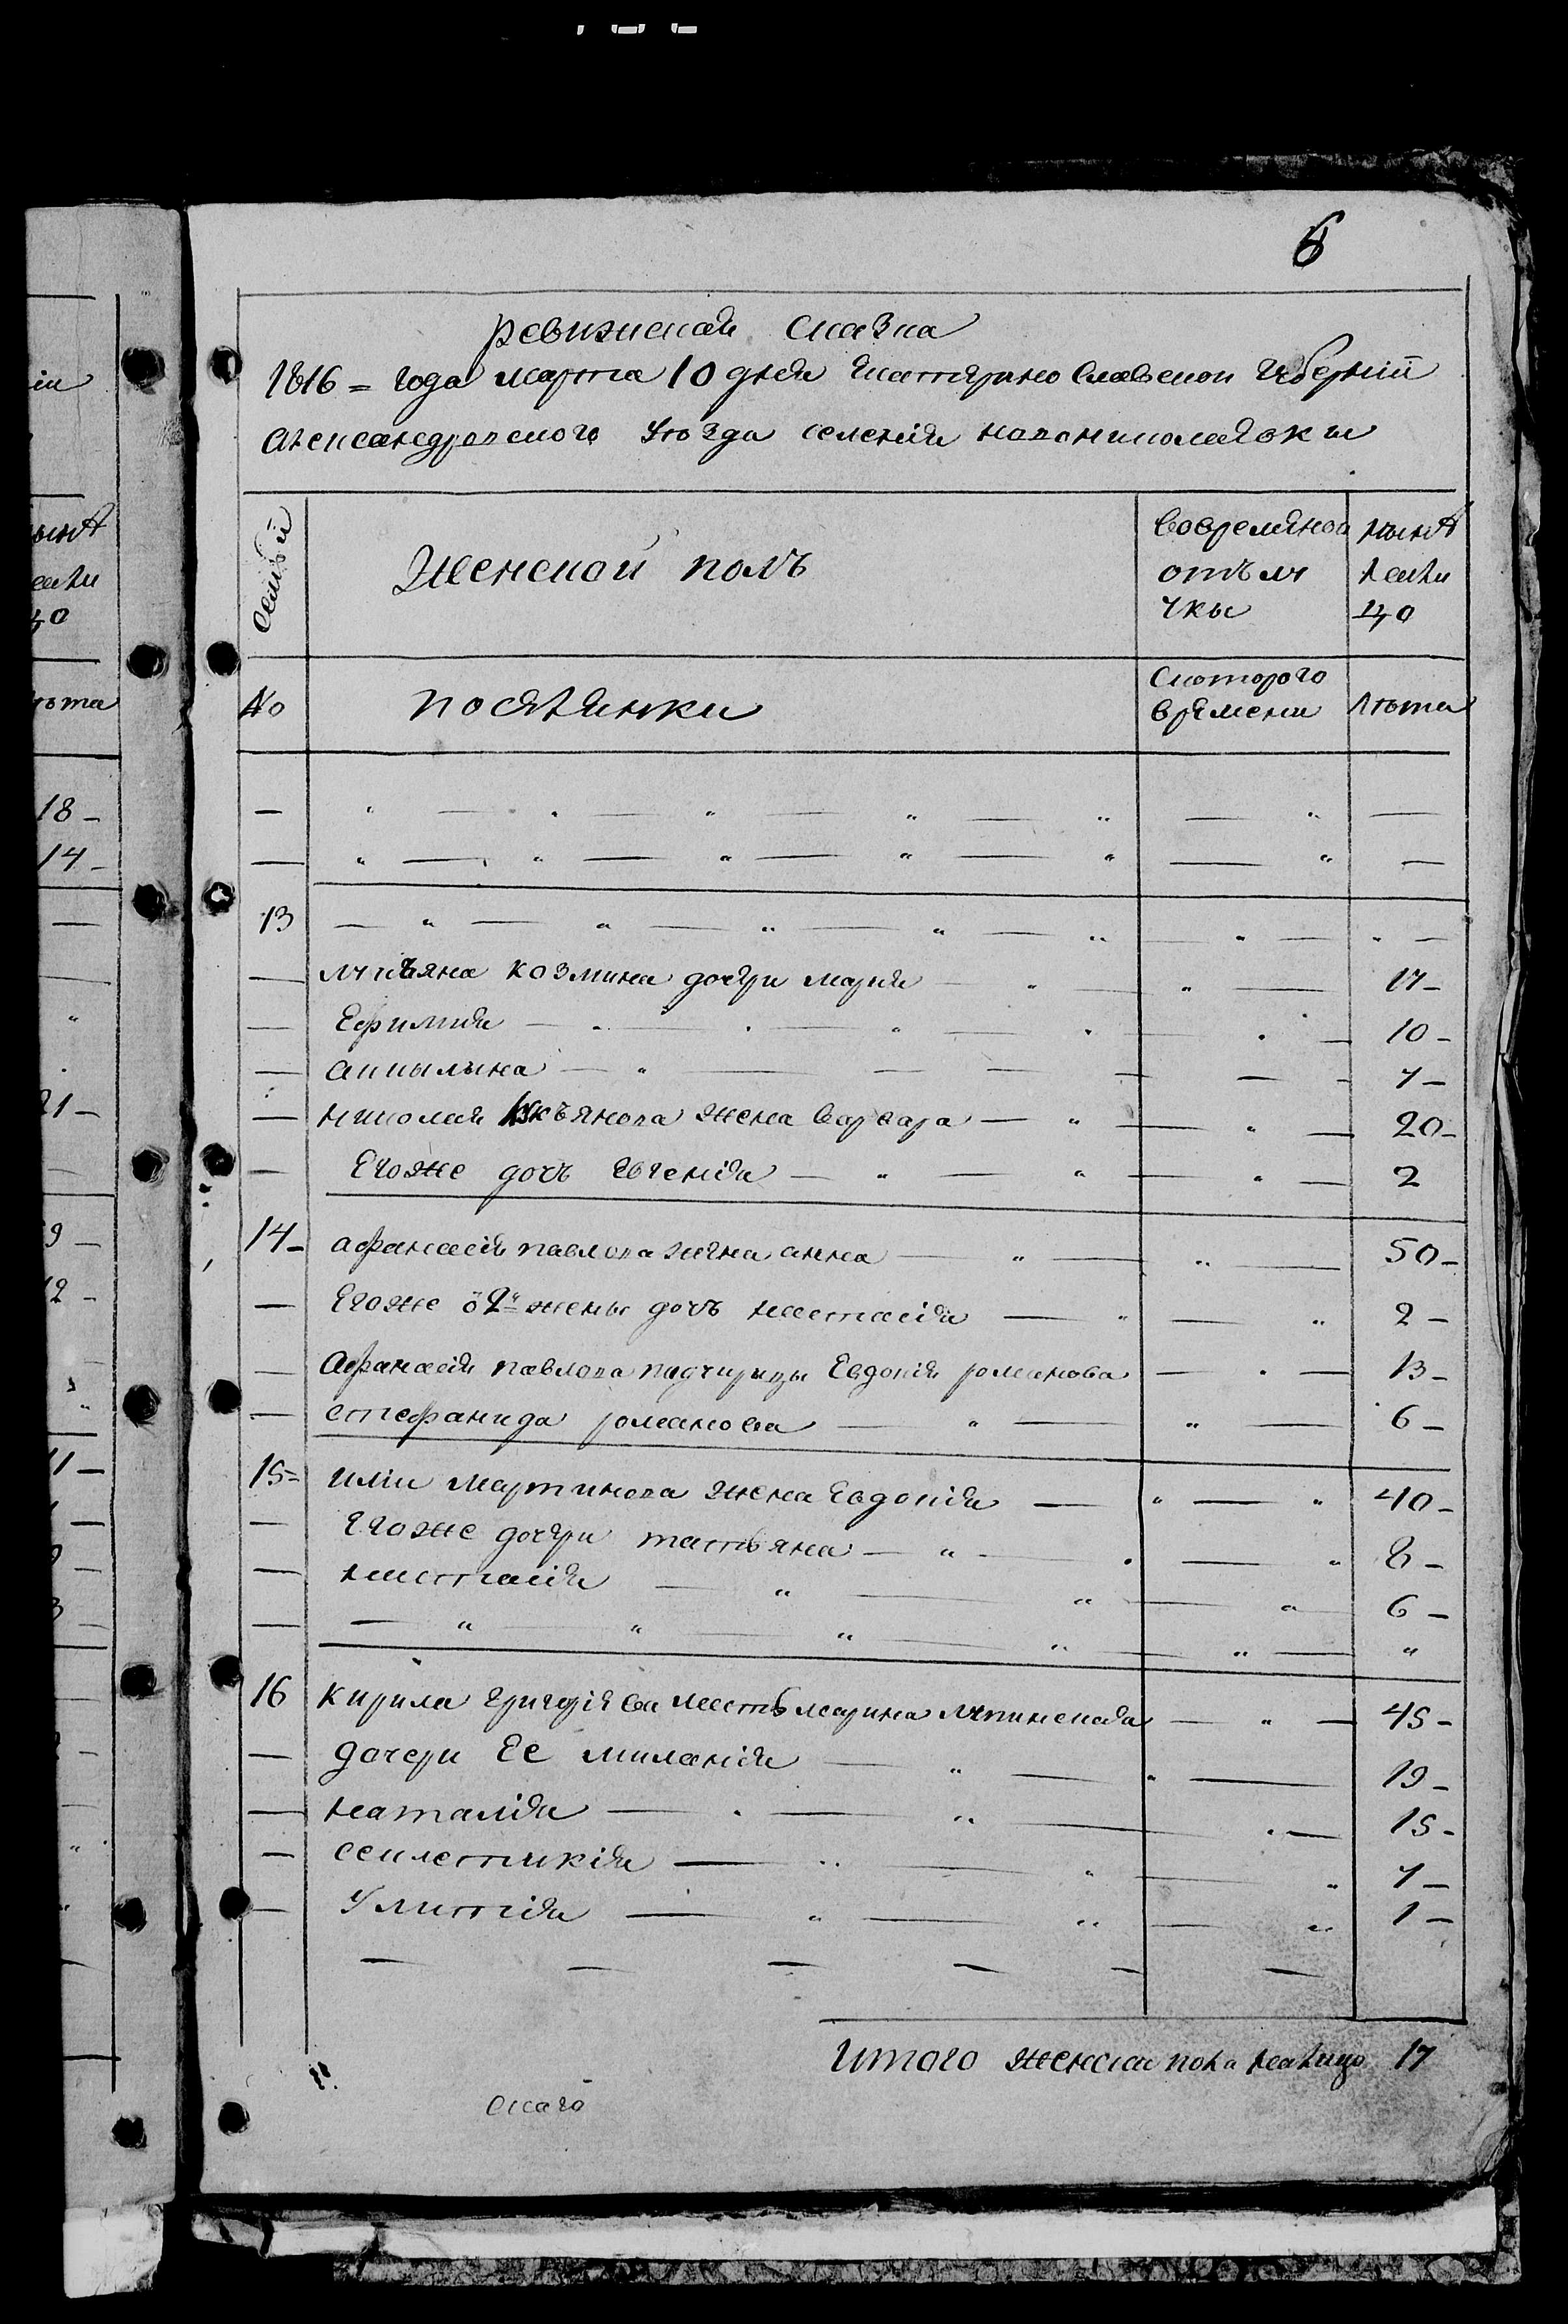 6
ревижская сказка
1816 = года марта 10 дня Екатярино Славской Губернiи
александровского уѣзда селенiя новониколаевки
Семьи
Женской полъ
Совремяной отълучкы
нынѣ налицо
No
посялянки
Скоторого врямени
лѣта
13
лукъяна козмина дочяри марiя 17 -
Ефимия 10 -
акилына 7 -
николая лукъянова жена варвара 20 -
Егоже дочь Евгенiя 2
14 - афанасiя павлова жена анна 50 -
Егоже о 2й жены дочъ настасiя 2 -
Афанасiя павлова падчирицы Евдокiя романова 13 -
стефанида романова 6 -
15 = илiи мартинова жена Евдокiя 40 -
Егоже дочяри татьяна 8 -
настасiя 6 -
16 кирила григорiева мать марина 45 -
дочери Ее миланiя 19 -
наталiя 15 -
7 -
Улитiя 1 -
Итого женска пола налицо 17